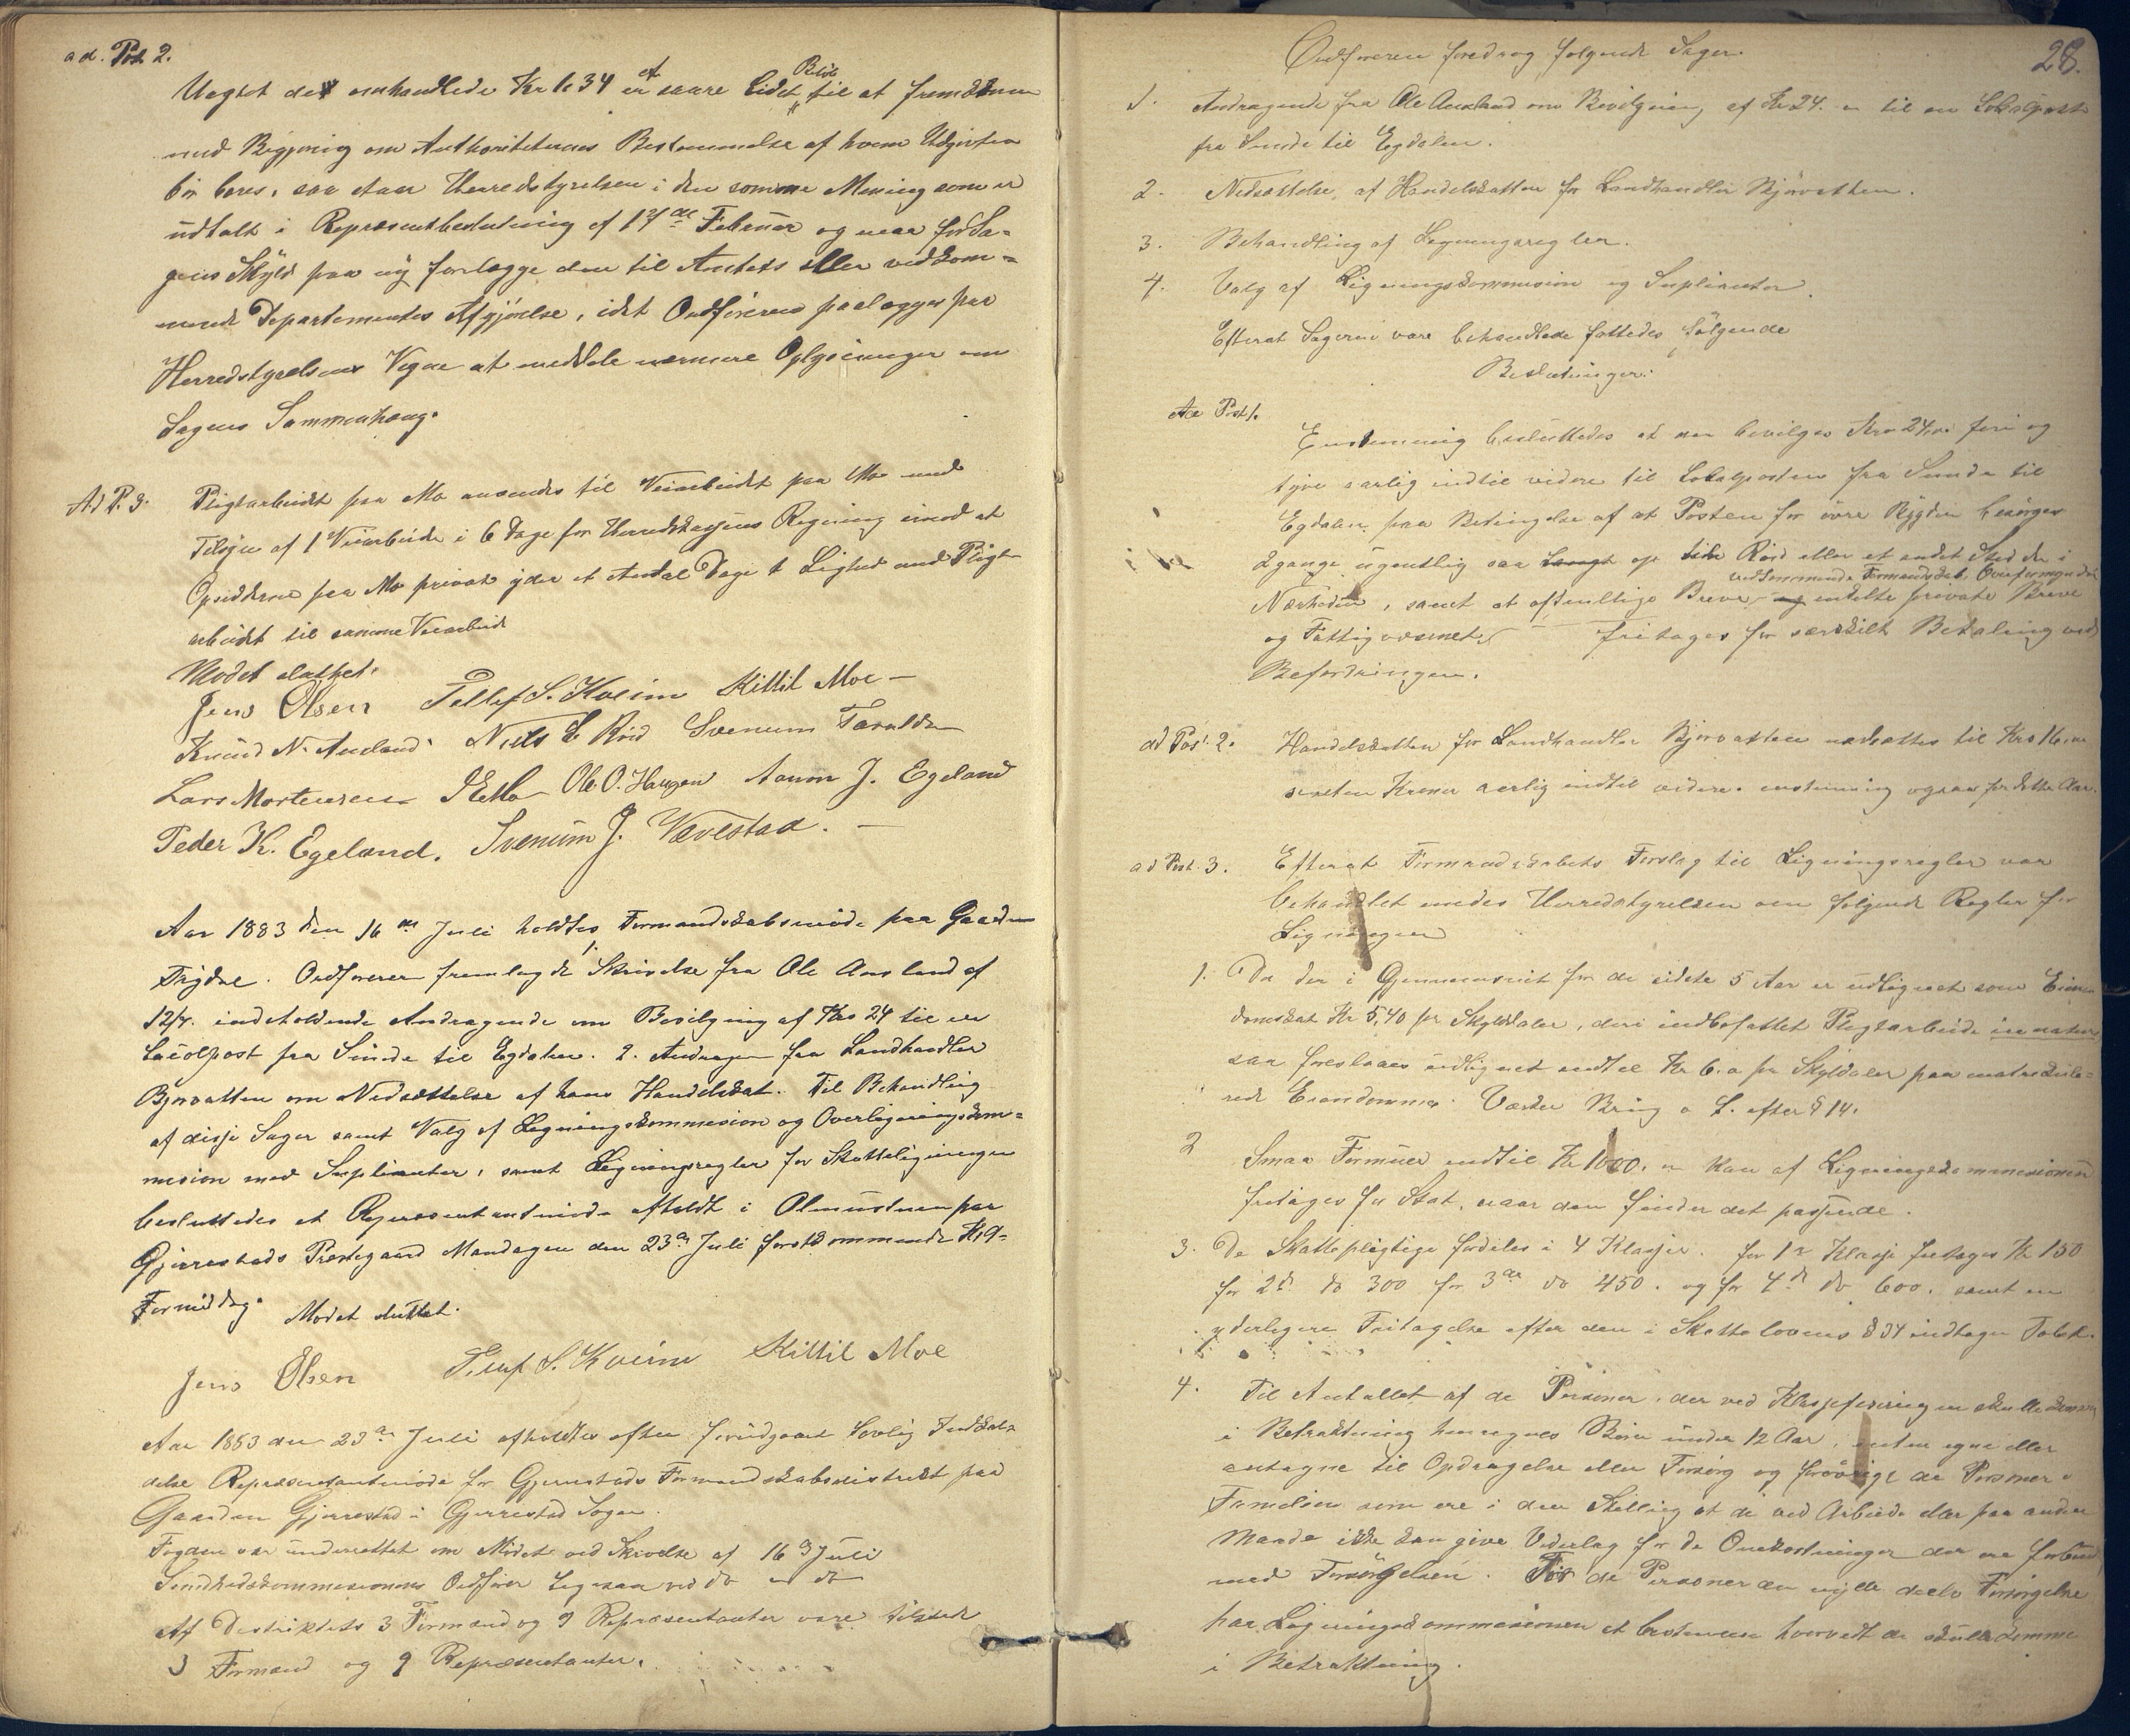 ad. Post 2.
Uagtet det omhandlede Kr 1.34 er et saare lidet Beløb til at fremkomme
med Begjæring om Authoriteternes Bestemmelse af hvem Udgivten
bør bæres, saa staar Herredstyrelsen i den somme Mening som er
udtalt i Repræsentbeslutning af 17de Februar og maa for Sa-
gens Skyld paa ny forelægge den til Amtets eller vedkom-
mende Departementes Afgjørelse, idet Ordføreren paalægges paa
Herredstyrelsens Vegne at meddele nærmere Oplysninger om
Sagens Sammenhæng.
Ad P. 3. Pligtarbeidet paa Mo ansendes til Veiarbeidet paa Mo med
Tilsyn af 1 Veiarbeider i 6 Dage for Herredskassens Regning imod at
Opsidderne paa Mo privat yder et Antal Dage i Lighed med Pligt-
arbeidet til samme Veiarbeid
Mødet sluttet.
Jens Olsen Tellef S. Kveim Kittil Moe
Knud N. Ausland Niels E Røed Svenum Taraldsen
Lars Mortensen Ole O. Haugen Aanon J. Egeland
Peder K. Egeland. Svenum J. Vævestad.
Aar 1883 den 16de Juli holdtes Formandskabsmøde paa Gaarden
Trydal. Ordføreren fremlagde 1. Skrivelse fra Ole Ausland af
12/7. indeholdende Andragende om Bevilgning af Kro 24 til en
Localpost fra Sunde til Egdalen. 2. Andragen fra Landhandler
Bjorvatten om Nedsættelse af hans Handelskat. Til Behandling
af disse Sager samt Valg af Ligningskommision og Overligningskom-
mision med Suplianter, samt Ligningsregler for Skatteligningen
besluttedes et Repræsentantmøde afholdt i Almustuen paa
Gjerrestads Prestegaard Mandagen den 23de Juli førstkommende Kl 9
Formiddag. Mødet sluttet.
Jens Olsen Tellef S. Kveim Kittil Moe
Aar 1883 den 23de Juli afholdtes efter forudgaaet lovlig Indkal-
delse Repræsentantmøde for Gjerrestads Formandskabsdistrikt paa
Gaarden Gjerrestad i Gjerrestad Sogn.
Fogden var underrettet om Mødet ved Skrivelse af 16de Juli
Sundhedskommisionens Ordfører ligesaa ved do do
Af Distriktets 3 Formænd og 9 Repræsentanter vare tilstede
3 Formænd og 9 Repræsentanter.
28.
Ordføreren foredrog følgende Sager.
1. Andragende fra Ole Ausland om Bevilgning af Kr 24. til en Lokalpost
fra Sunde til Egdalen.
2. Nedsættelse af Handelskatten for Landhandler Bjørvatten.
3. Behandling af Ligningsregler.
4. Valg af Ligningskommision og Suplianter.
Efterat Sagerne vare behandlede fattedes følgende
Beslutninger:
Ad Post 1.
Enstemmig besluttedes at der bevilges Kro 24,00 fire og
tyve aarlig indtil videre til Lokalposten fra Sunde til
Egdalen paa Betingelse af at Posten for øvre Bygden besørges
2 gange ugentlig saa langt op til Røed eller et andet Sted der i
Nærheden, samt at offentlige Breve og enkelte private Breve
vedkommende Formandskab, Overformynderi
og Fattigvæsenet fritages for særskilt Betaling ved
Befordringen.
ad Post 2. Handelskatten for Landhandler Bjorvatten nedsættes til Kro 16,00
sexten Kroner aarlig indtil videre. enstemmig ogsaa for dette Aar.
ad Post. 3. Efterat Formandskabets Forslag til Ligningsregler var
behandlet enedes Herredstyrelsen om følgende Regler for
Ligningen
1. Da der i Gjennemsnit for de sidste 5 Aar er udlignet som Eien-
domsskat Kr 5,40 pr Skylddaler, deri indbefattet Pligtarbeide in natura
saa foreslaaes udlignet indtil Kr 6.0 pr Skyldaler paa matrikule-
rede Eiendomme. Værker Brug o L. efter § 14.
2 Smaa Formuer indtil Kr 1000. kan af Ligningskommisionen
fritages for Skat, naar den finder det passende.
3. De Skattepligtige fordeles i 4 Klasser. for 1ste Klasse fratages Kr 150
for 2de do 300 for 3die do 450. og for 4de do 600. samt en
yderligere Fritagelse efter den i Skattelovens § 34 indtagne Tabel.
4. Til Antallet af de Personer, der ved Klassificeringen skulle komme
i Betraktning henregnes Børn under 12 Aar, enten egne eller
antagne til Opdragelse eller Forsørg og forøvrige de Personer i
Familien som ere i den Stilling at de ved Arbeide eller paa anden
Maade ikke kan give Vederlag for de Omkostninger der ere forbundne
med Forsørgelsen. For de Personer der nyde delv Forsørgelse
har Ligningskommisionen at bestemme hvorvidt de skulle komme
i Betraktning.